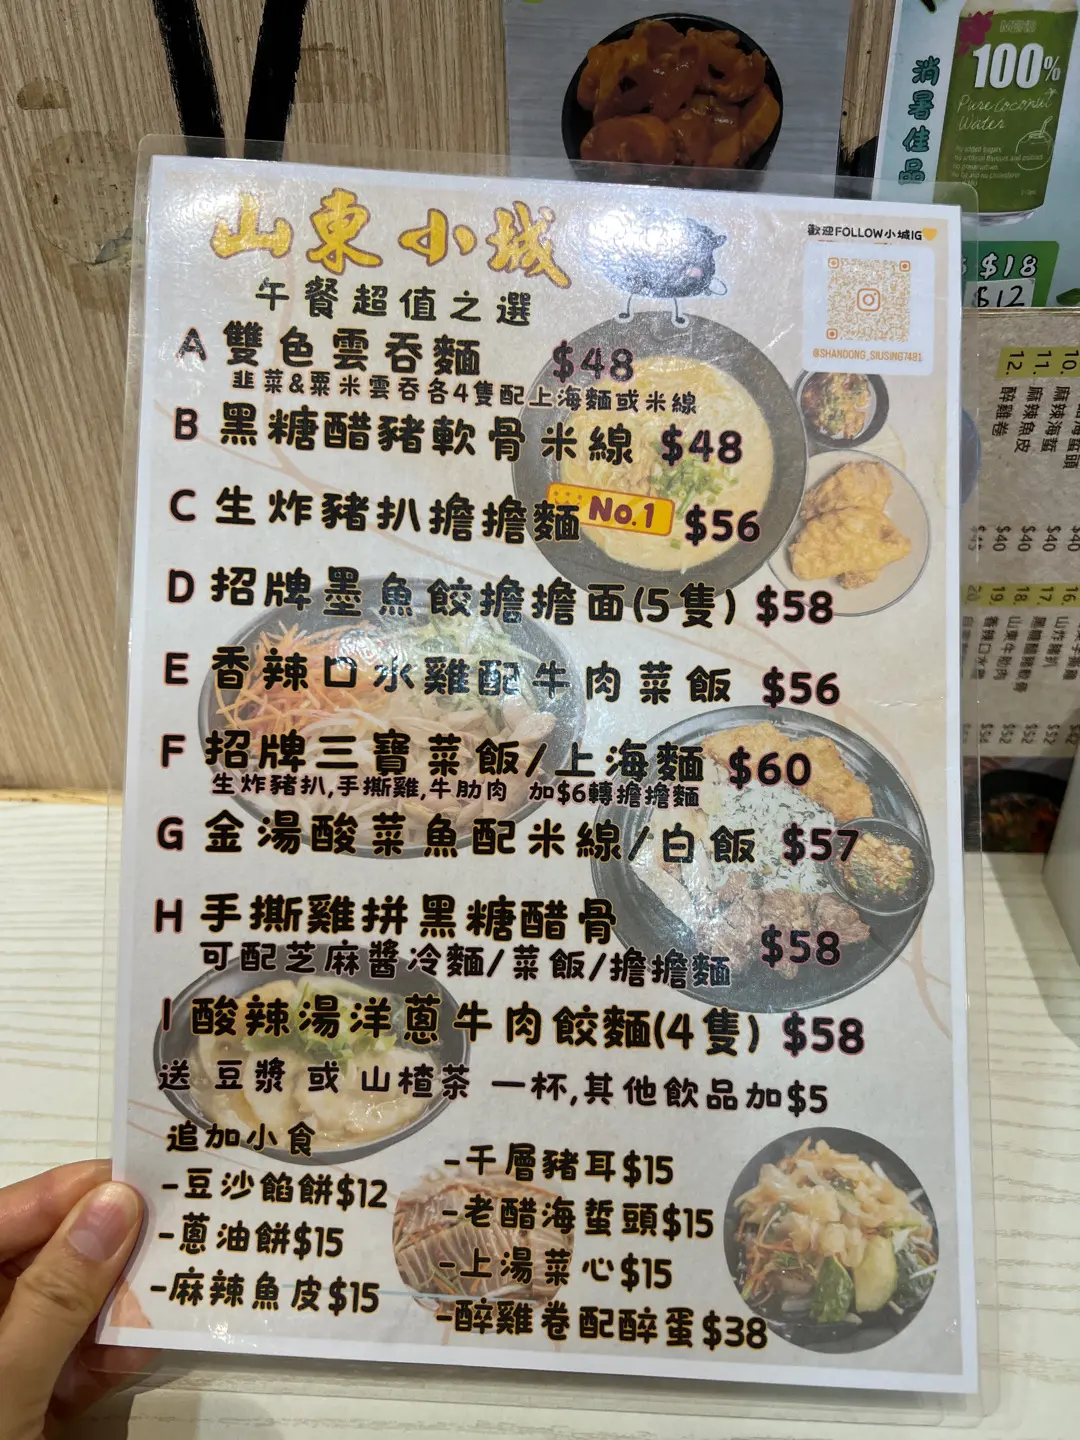 山東小城
歡迎FOLLOW小城IG
@SHANDONG_SIUSING7481
午餐超值之選
A 雙色雲吞麵 $48
韭菜&粟米雲吞各4隻配上海麵或米線
B 黑糖醋豬軟骨米線 $48
C 生炸豬扒擔擔麵 No.1 $56
D 招牌墨魚餃擔擔面(5隻) $58
E 香辣口水雞配牛肉菜飯 $56
F 招牌三寶菜飯/上海麵 $60
生炸豬扒,手撕雞,牛肋肉 加$6轉擔擔麵
G 金湯酸菜魚配米線/白飯 $57
H 手撕雞拼黑糖醋骨 $58
可配芝麻醬冷麵/菜飯/擔擔麵
I 酸辣湯洋蔥牛肉餃麵(4隻) $58
送 豆漿 或 山楂茶 一杯,其他飲品加$5
追加小食
-豆沙餡餅$12
-蔥油餅$15
-麻辣魚皮$15
-千層豬耳$15
-老醋海蜇頭$15
-上湯菜心$15
-醉雞卷配醉蛋$38
消暑佳品
100%
Pure Coconut
Water
$18
$12
11. 麻辣魚皮 $40
12. 醉雞卷
16.
17. 山炸豬扒 $52
18. 山東牛肋肉 $52
19.
20.